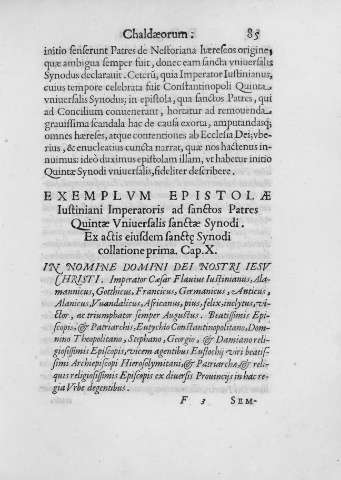 Chaldæorum. 85
initio senserunt Patres de Nestoriana hæreseos origine,
quæ ambigua semper fuit, donec eam sancta vniuersalis
Synodus declarauit. Ceterũ, quia Imperator Iustinianus,
cuius tempore celebrata fuit Constantinopoli Quinta
vniuersalis Synodus; in epistola, qua sanctos Patres, qui
ad Concilium conuenerant, hortatur ad remouenda
grauissima scandala hac de causa exorta, amputandasq;
omnes hæreses, atque contentiones ab Ecclesia Dei; vbe-
rius, & enucleatius cuncta narrat, quæ nos hactenus in-
nuimus: ideò duximus epistolam illam, vt habetur initio
Quintæ Synodi vniuersalis, fideliter describere.
EXEMPLVM EPISTOLÆ
Iustiniani Imperatoris ad sanctos Patres
Quintæ Vniuersalis sanctæ Synodi.
Ex actis eiusdem sanctę Synodi
collatione prima. Cap. X.
IN NOMINE DOMINI DEI NOSTRI IESV
CHRISTI. Imperator Cæsar Flauius Iustinianus, Ala-
mannicus, Gotthicus, Francicus, Germanicus, Anticus,
Alanicus, Vuandalicus, Africanus, pius, felix, inclytus, vi-
ctor, ac triumphator semper Augustus. Beatissimis Epi-
scopis, & Patriarchis, Eutychio Constantinopolitano, Dom-
nino Theopolitano, Stephano, Georgio, & Damiano reli-
giosissimis Episcopis, vicem agentibus Eustochij viri beatis-
simi Archiepiscopi Hierosolymitani, & Patriarchæ, & reli-
quis religiosissimis Episcopis ex diuersis Prouincijs in hac re-
gia Vrbe degentibus.
F 3 SEM-